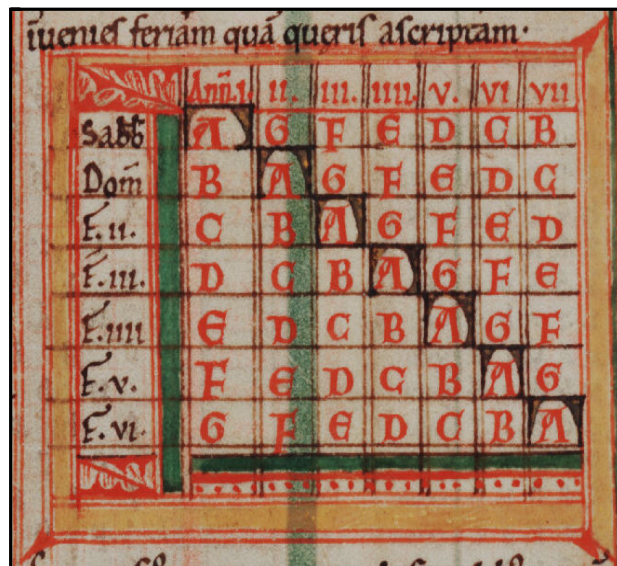 iuenies feriam quā queris ascriptam·
Anñ.I. II. III. IIII. V. VI VII
Sabb A G F E D C B
Dom̄ B A G F E D C
F.II. C B A G F E D
F.III. D C B A G F E
F.IIII E D C B A G F
F.V. F E D C B A G
F.VI. G F E D C B A